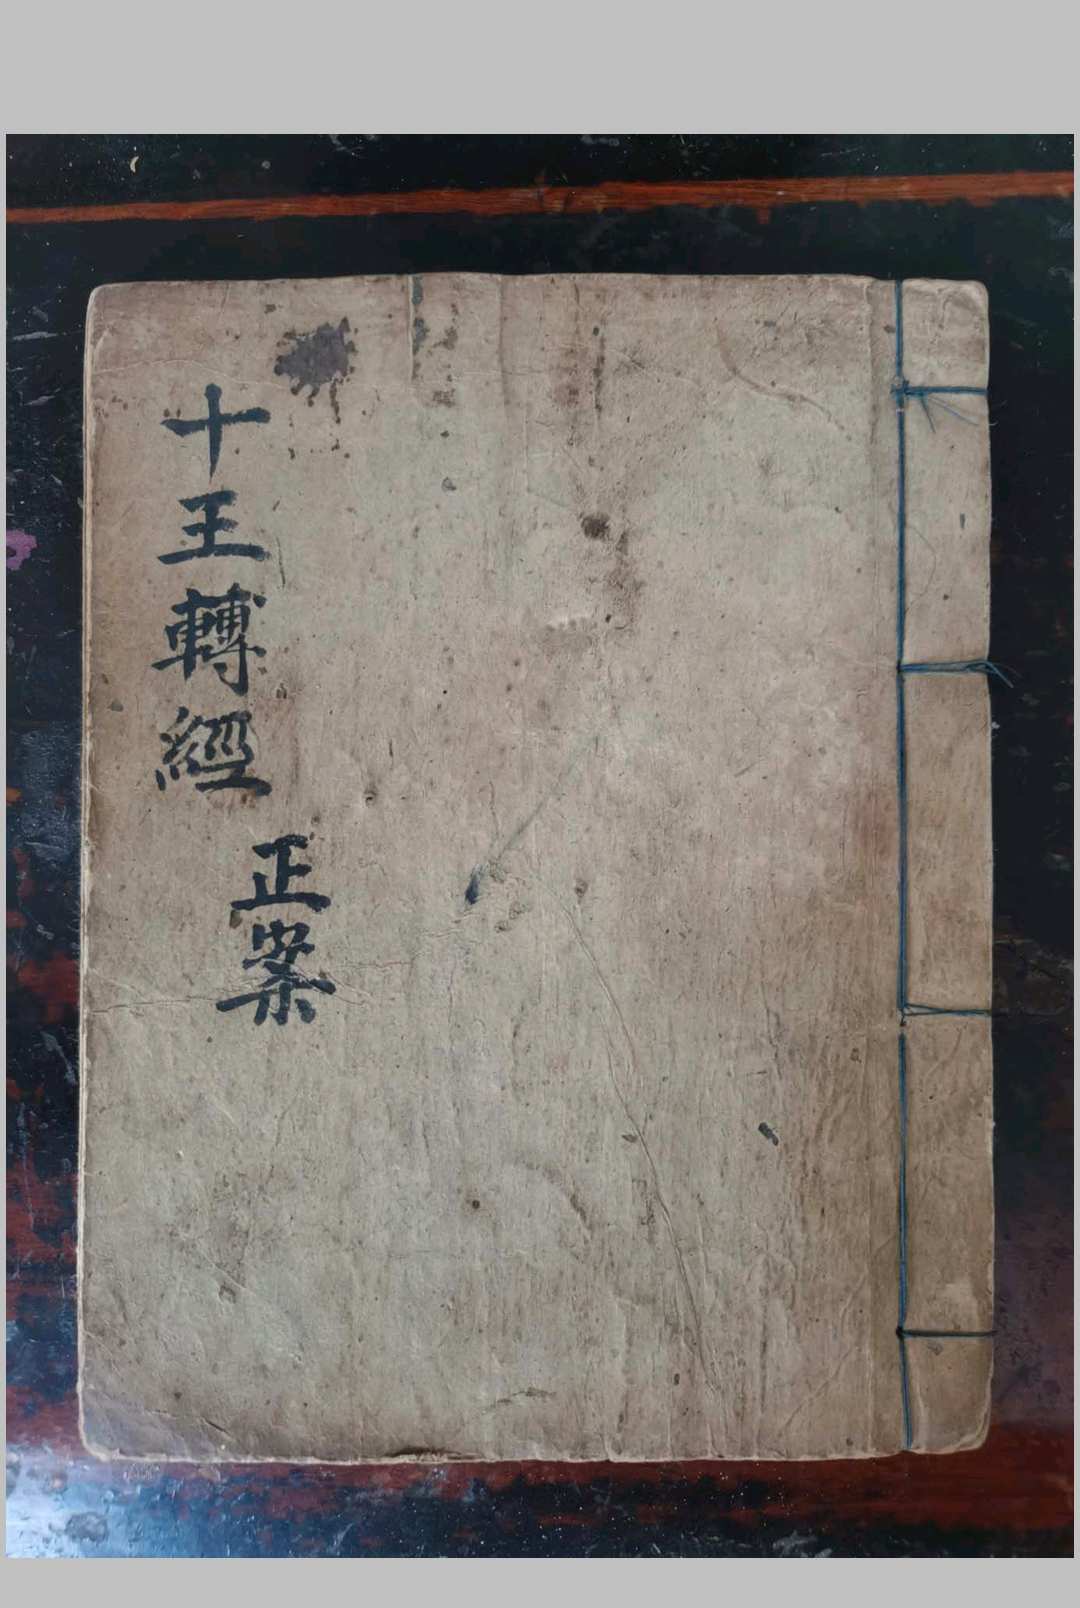 十王轉經
正案